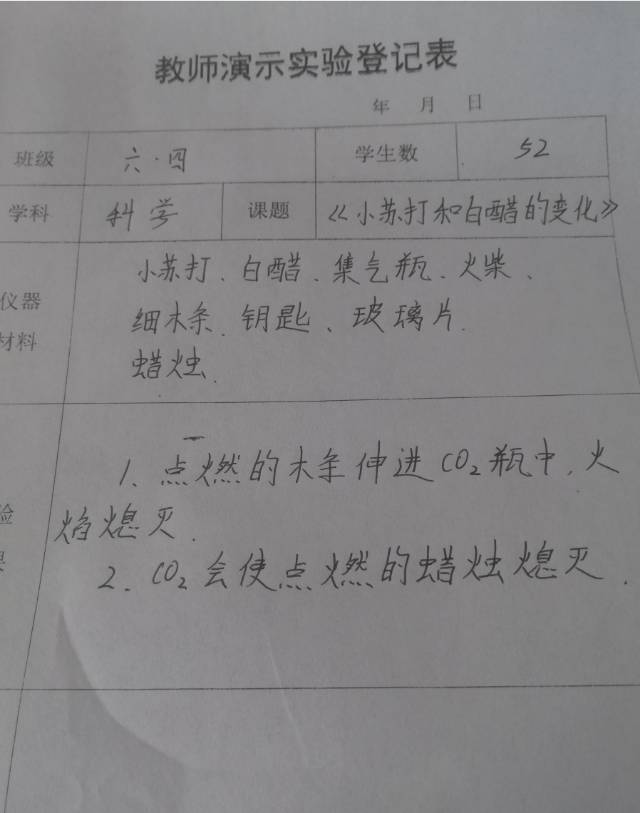 教师演示实验登记表
年 月 日
班级 六.四 学生数 52
学科 科学 课题 《小苏打和白醋的变化》
仪器
材料
小苏打、白醋、集气瓶、火柴、
细木条、钥匙、玻璃片.
蜡烛.
验
果
1、点燃的木条伸进CO₂瓶中,火
焰熄灭.
2、CO₂会使点燃的蜡烛熄灭.